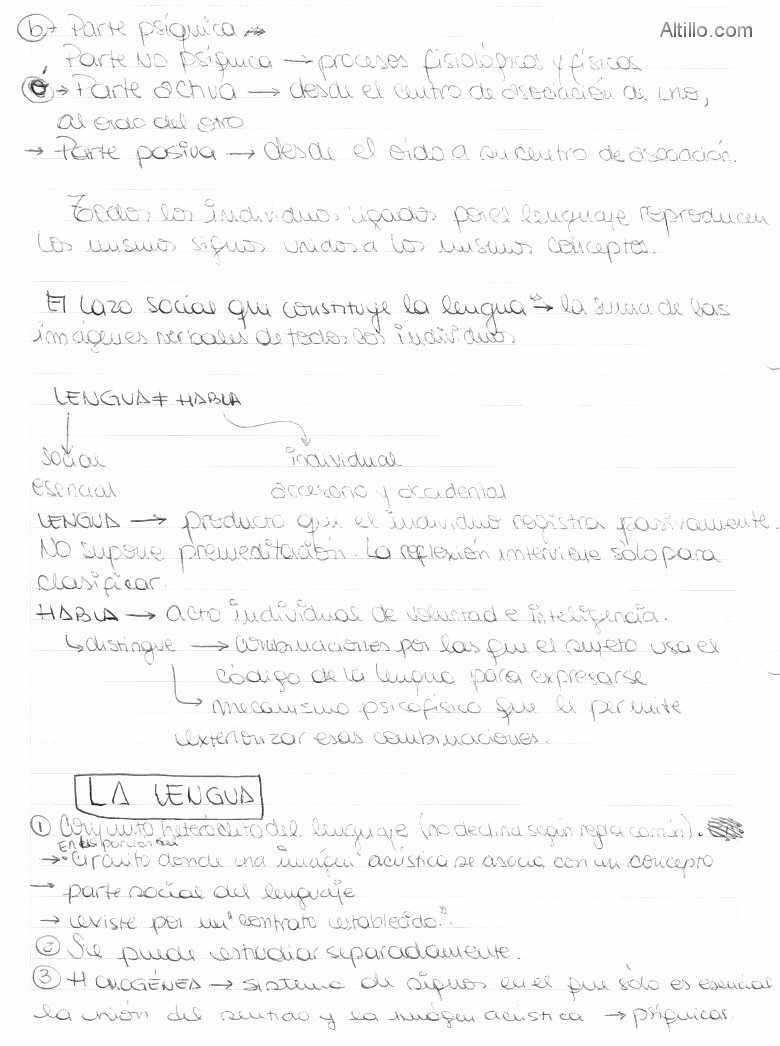 Altillo.com
b → Parte psíquica →
Parte No psíquica → procesos fisiológicos y físicos
c → Parte activa → desde el centro de asociación de uno,
al oído del otro
→ Parte pasiva → desde el oído a su centro de asociación.
Todos los individuos ligados por el lenguaje reproducen
los mismos signos unidos a los mismos conceptos.
El lazo social que constituye la lengua → la suma de las
imágenes verbales de todos los individuos
LENGUA ≠ HABLA
social individual
esencial accesorio y accidental
LENGUA → producto que el individuo registra pasivamente.
No supone premeditación. La reflexión interviene sólo para
clasificar.
HABLA → acto individual de voluntad e inteligencia.
↳ distingue → combinaciones por las que el sujeto usa el
código de la lengua para expresarse
→ mecanismo psicofísico que le permite
exteriorizar esas combinaciones.
LA LENGUA
① Conjunto heteróclito del lenguaje (no declina según regla común).
→ Circuito donde una imagen acústica se asocia con un concepto
→ parte social del lenguaje
→ existe por un "contrato establecido".
② Se puede estudiar separadamente.
③ HOMOGÉNEA → sistema de signos en el que sólo es esencial
la unión del sentido y la imagen acústica → psíquicas.